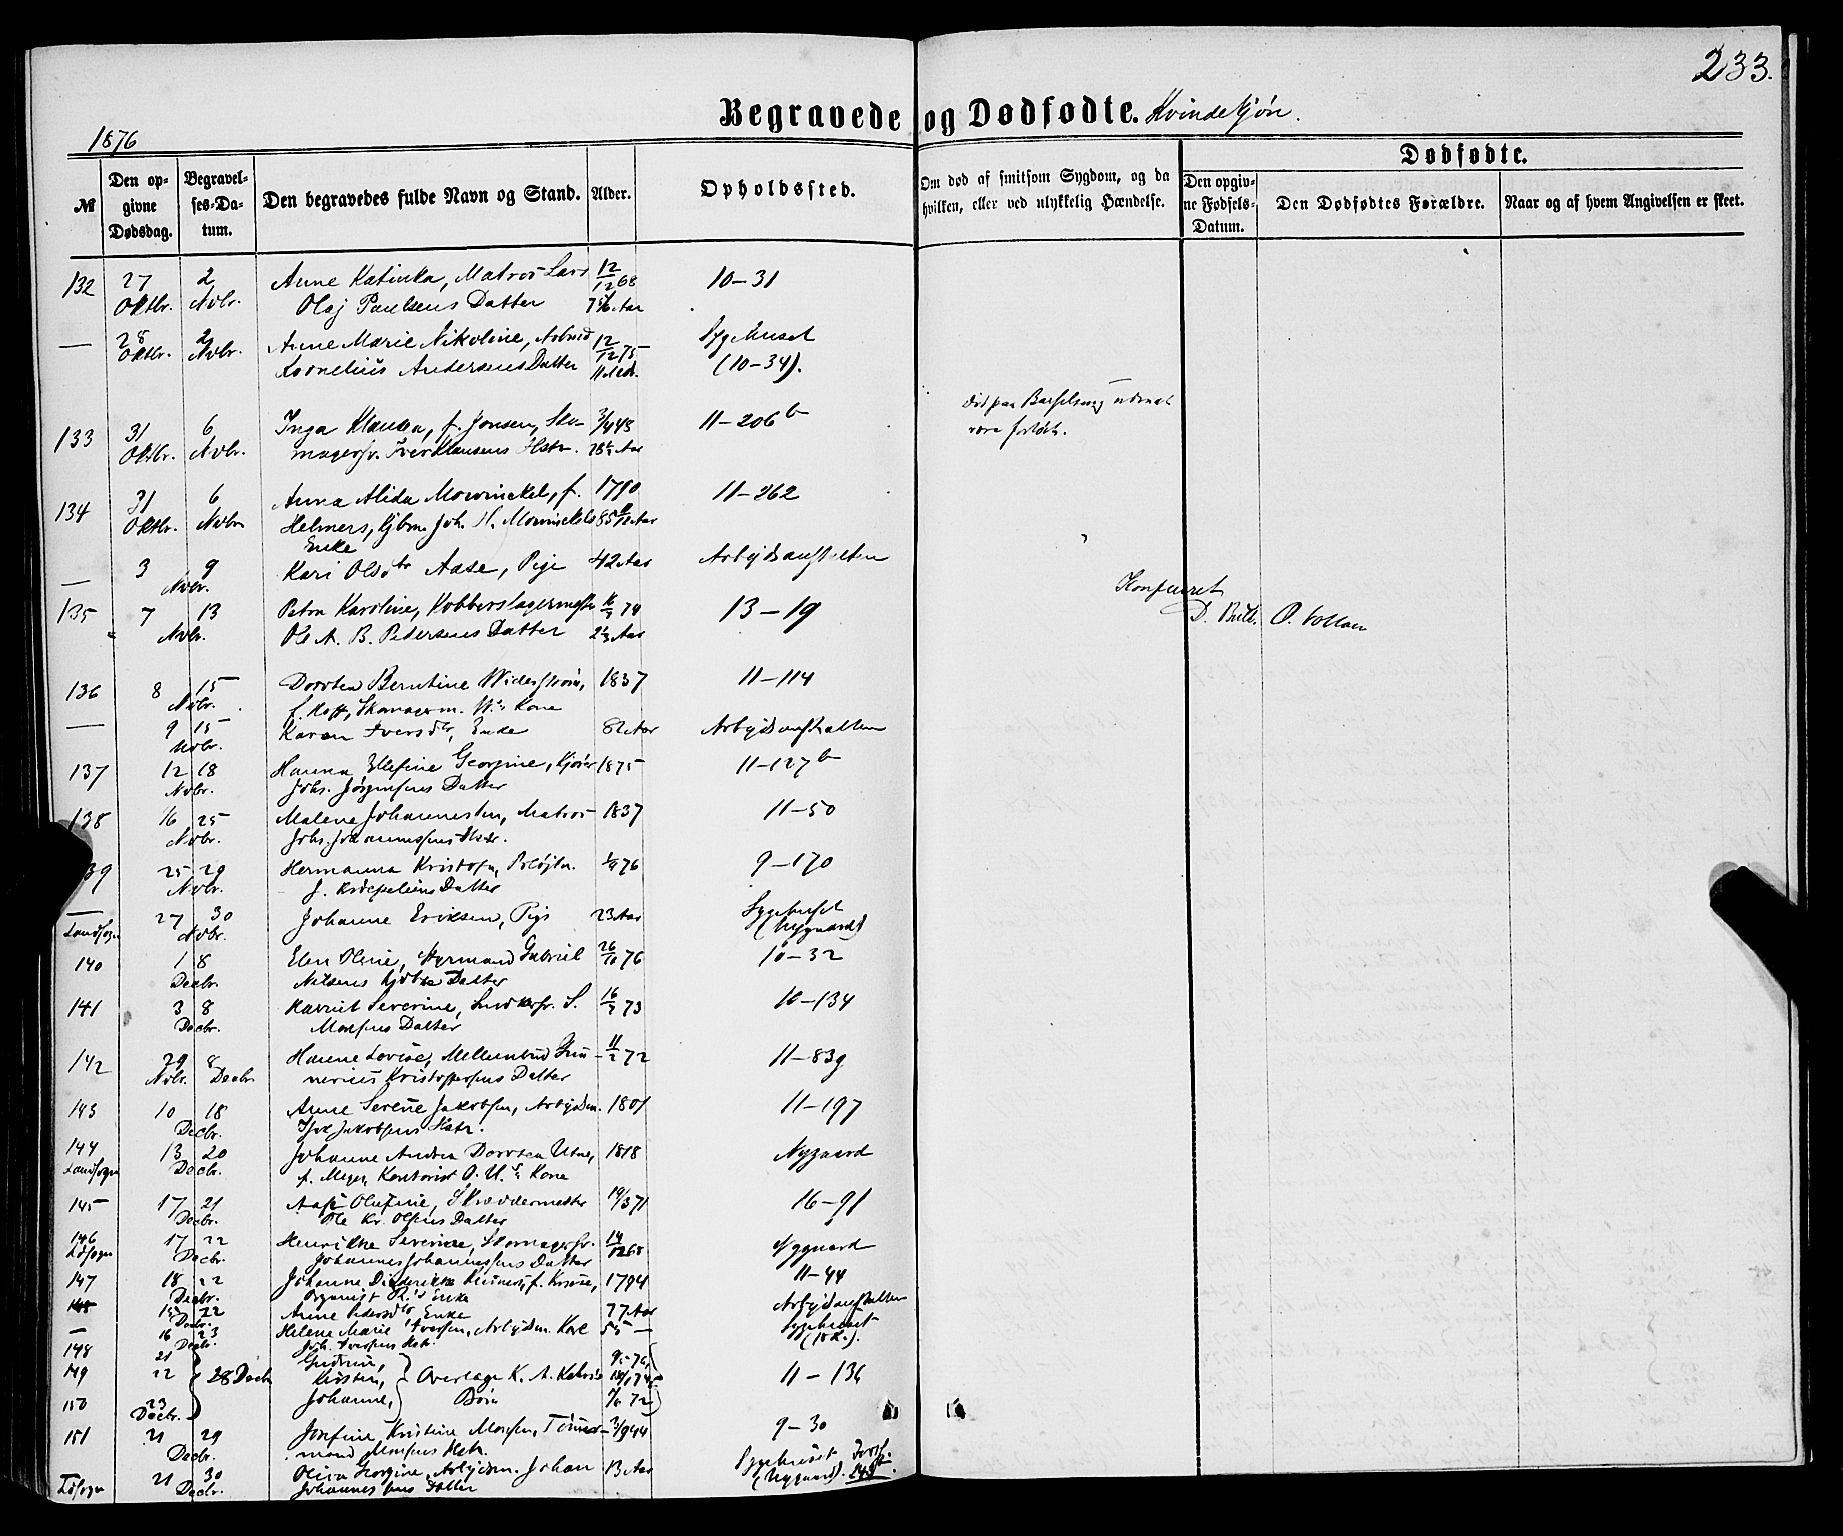 233.
Begravede og Dødfødte. Kvindekjøn.
1876
№
Den opgivne Dødsdag.
Begravelses-Datum.
Den begravedes fulde Navn og Stand.
Alder.
Opholdssted.
Om død af smitsom Sygdom, og da
hvilken, eller ved ulykkelig Hændelse.
Dødfødte.
Den opgivne Fødsels-Datum.
Den Dødfødtes Forældre.
Naar og af hvem Angivelsen er skeet.
132 27 2 Anne Katinka, Matros Lars 12/12 68 10–31
Oktbr. Novbr. Olaj Paulsens Datter Aar
— 28 2 Anne Marie Nikoline, Arbeid 12/12 75 Sygehuset
Oktbr. Novbr. Kornelius Andersens Datter 11 Md. (10–34).
133 31 6 Inga Klausen, f. Jonsen, Sko- 11–206 b
Oktbr. Novbr. magersv. Iver Klausens Hstr. Aar
134 31 6 Anna Alida Mowinckel, f. 1790 11–262
Oktbr. Novbr. Helmers, Kjbm. Joh. H. Mowinckels Aar
Enke
— 3 9 Kari Olsdtr Aase, Pige 42 Aar Arbejdsanstalten
Novbr.
Konfereret
135 7 13 Petra Karoline, Kobberslagermester 74 13–19 D. Bull. O. Vollan
Novbr. Ole A. B. Pedersens Datter Aar
136 8 15 Dorthea Berntine Widerstrøm, 1837 11–114
Novbr. Skomagerm. W.s Kone
— 9 15 Karen Iversdtr, Enke 82 Aar Arbejdsanstalten
Novbr.
137 12 18 Hanna Ellefine Georgine, 1875 11–127 b
Novbr. Johs. Jørgensens Datter
138 16 25 Malene Johannessen, Matros 1837 11–50
Novbr. Johs. Johannessens Hstr.
139 25 29 Hermanna 76 9–170
Novbr. Datter
— 27 30 Johanne Eriksen, Pige 23 Aar Sygehuset
Landsogn Novbr. (Nygaard)
140 1 8 Elen Oline, Styrmand Gabriel 26/10 76 10–32
Decbr. Nilsens Datter
141 3 8 Harriet Severine, Snedkersv. S. 73 16–134
Decbr. Monsens Datter
142 29 8 Hanne Lovise, 11/2 72 11–839
Novbr. Decbr. Kristoffersens Datter
143 10 18 Anne Serene Jakobsen, Arbejdsm. 1801 11–197
Decbr. Jakobsens Hstr.
144 13 20 Johanne Andrea Dorthea Utne, 1818 Nygaard
Landsogn Decbr. f. Meyer, Kontorist O. U.s Kone
145 17 21 Olufine, Skræddermester 19/3 71 16–91
Decbr. Ole Kr. Olsens Datter
146 17 22 Henrikke Severine, Skomagersv. 14/12 68 Nygaard
Ldsogn Decbr. Johannes Johannessens Datter
147 18 22 Johanne Diderikke f. Krause, 1794 11–44
Decbr. Organist R.'s Enke
148 15 22 Anne Pedersdtr, Enke 77 Aar Arbejdsanstalten
Decbr.
— 16 23 Helene Marie Iversen, Arbejdsm. Kone 55 — Sygehuset
Decbr. Joh. Iversens Hstr.
148 21 Gudrun,
149 22 28 Decbr. Kirsten, Overlæge K. A. 11–136
150 23 Johanne, Børn 72
Decbr.
151 21 29 Josefine Kristine Monsen, Tømmer- 3/9 44 9–30
Decbr. mand Monsens Hstr.
21 30 Oliva Georgine, Arbejdsm. Johan 13 Aar Sygehuset
Ldsogn Decbr. Johannessens Datter (Nygaard).